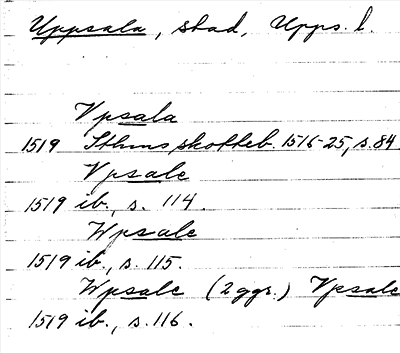 Uppsala, stad, Upps. l.
Vpsala
1519 Sthms skotteb. 1516-25, s. 84
Vpsale
1519 ib., s. 114.
Wpsale
1519 ib., s. 115.
Wpsale (2 ggr.) Vpsale
1519 ib., s. 116.